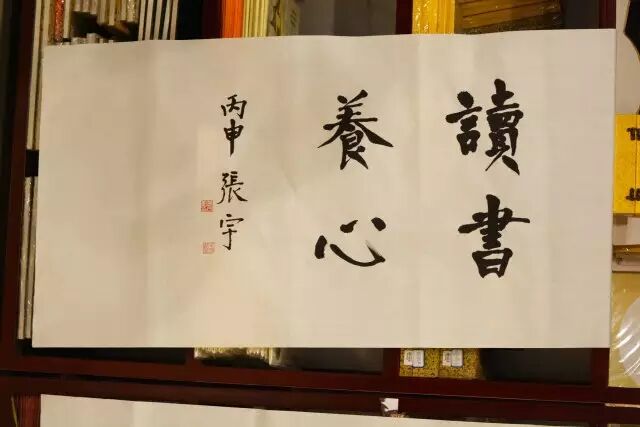 讀書
養心
丙申 張宇